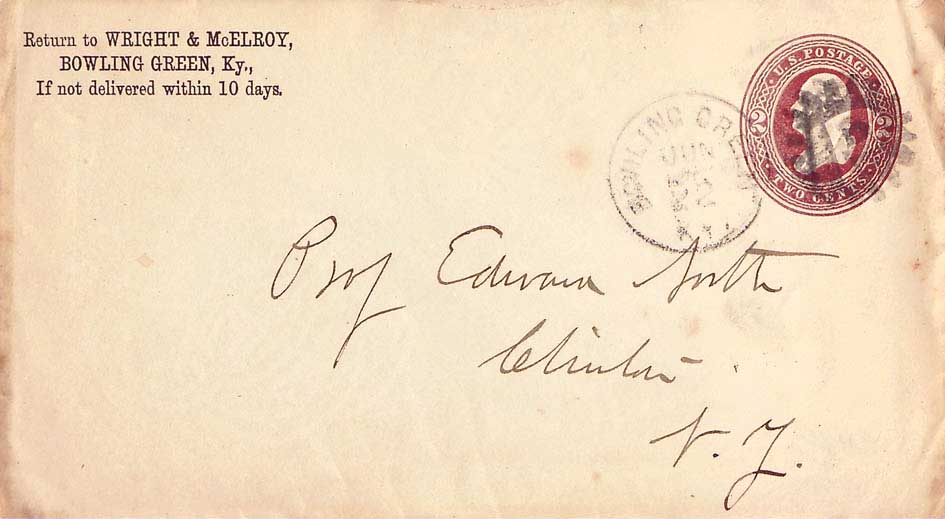 Return to WRIGHT & McELROY,
BOWLING GREEN, Ky.,
If not delivered within 10 days.
U.S. POSTAGE
2 2
TWO CENTS
BOWLING GREEN
JUN
KY.
Prof Edward North
Clinton
N. Y.